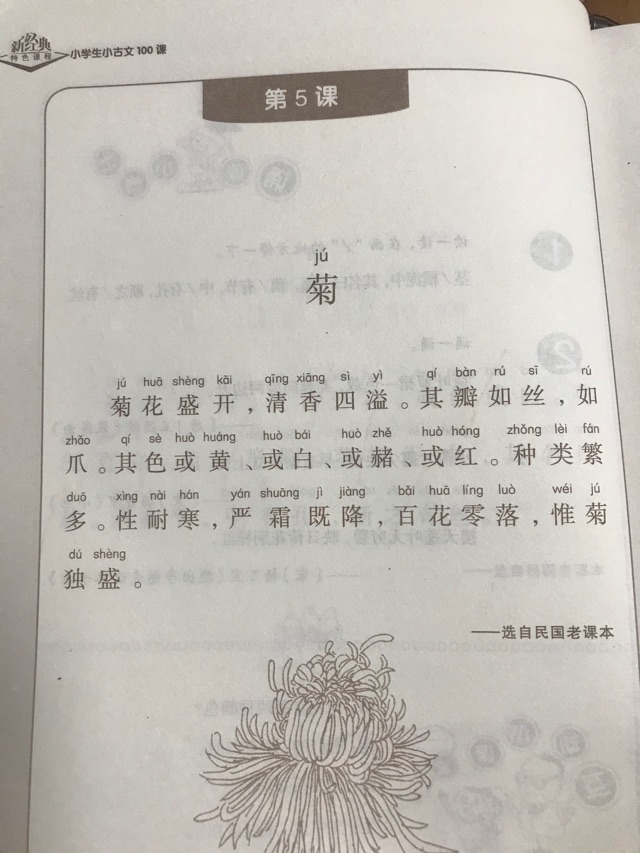 新经典
特色课程
小学生小古文100课
第5课
jú
菊
jú huā shèng kāi qīng xiāng sì yì qí bàn rú sī rú
菊花盛开，清香四溢。其瓣如丝，如
zhǎo qí sè huò huáng huò bái huò zhě huò hóng zhǒng lèi fán
爪。其色或黄、或白、或赭、或红。种类繁
duō xìng nài hán yán shuāng jì jiàng bǎi huā líng luò wéi jú
多。性耐寒，严霜既降，百花零落，惟菊
dú shèng
独盛。
——选自民国老课本